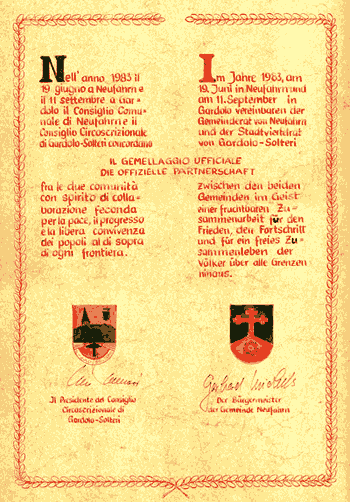 Nell' anno 1983 il
19 giugno a Neufahrn e
il 11 settembre a Gar-
dolo il Consiglio Comu-
nale di Neufahrn e il
Consiglio Circoscrizionale
di Gardolo-Solteri concordano
Im Jahre 1983, am
19. Juni in Neufahrn und
am 11. September in
Gardolo vereinbaren der
Gemeinderat von Neufahrn
und der Stadtviertelrat
von Gardolo-Solteri
IL GEMELLAGGIO UFFICIALE
DIE OFFIZIELLE PARTNERSCHAFT
fra le due comunità
con spirito di colla-
borazione feconda
per la pace, il progresso
e la libera convivenza
dei popoli al di sopra
di ogni frontiera.
zwischen den beiden
Gemeinden im Geist
einer fruchtbaren Zu-
sammenarbeit für den
Frieden, den Fortschritt
und für ein freies Zu-
sammenleben der
Völker über alle Grenzen
hinaus.
Il Presidente del Consiglio
Circoscrizionale di
Gardolo-Solteri
Der Bürgermeister
der Gemeinde Neufahrn